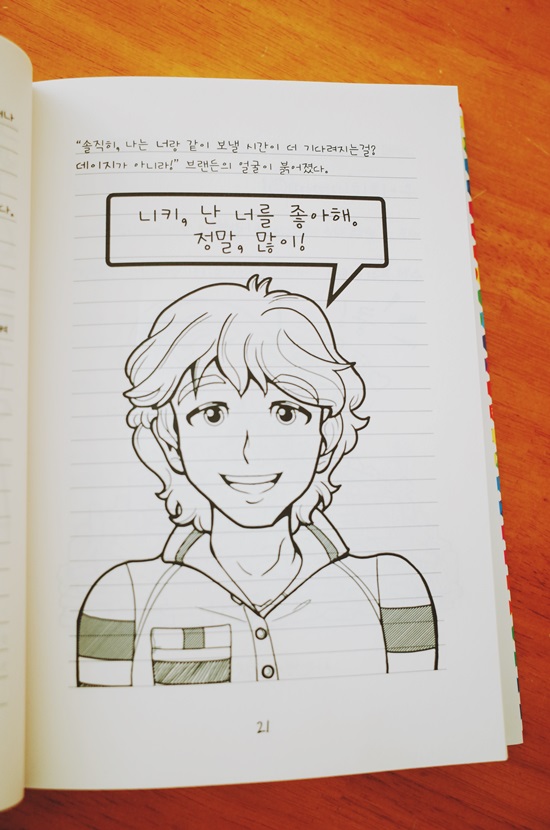 "솔직히, 나는 너랑 같이 보낼 시간이 더 기다려지는걸?
데이지가 아니라!" 브랜든의 얼굴이 붉어졌다.
니키, 난 너를 좋아해.
정말, 많이!
21